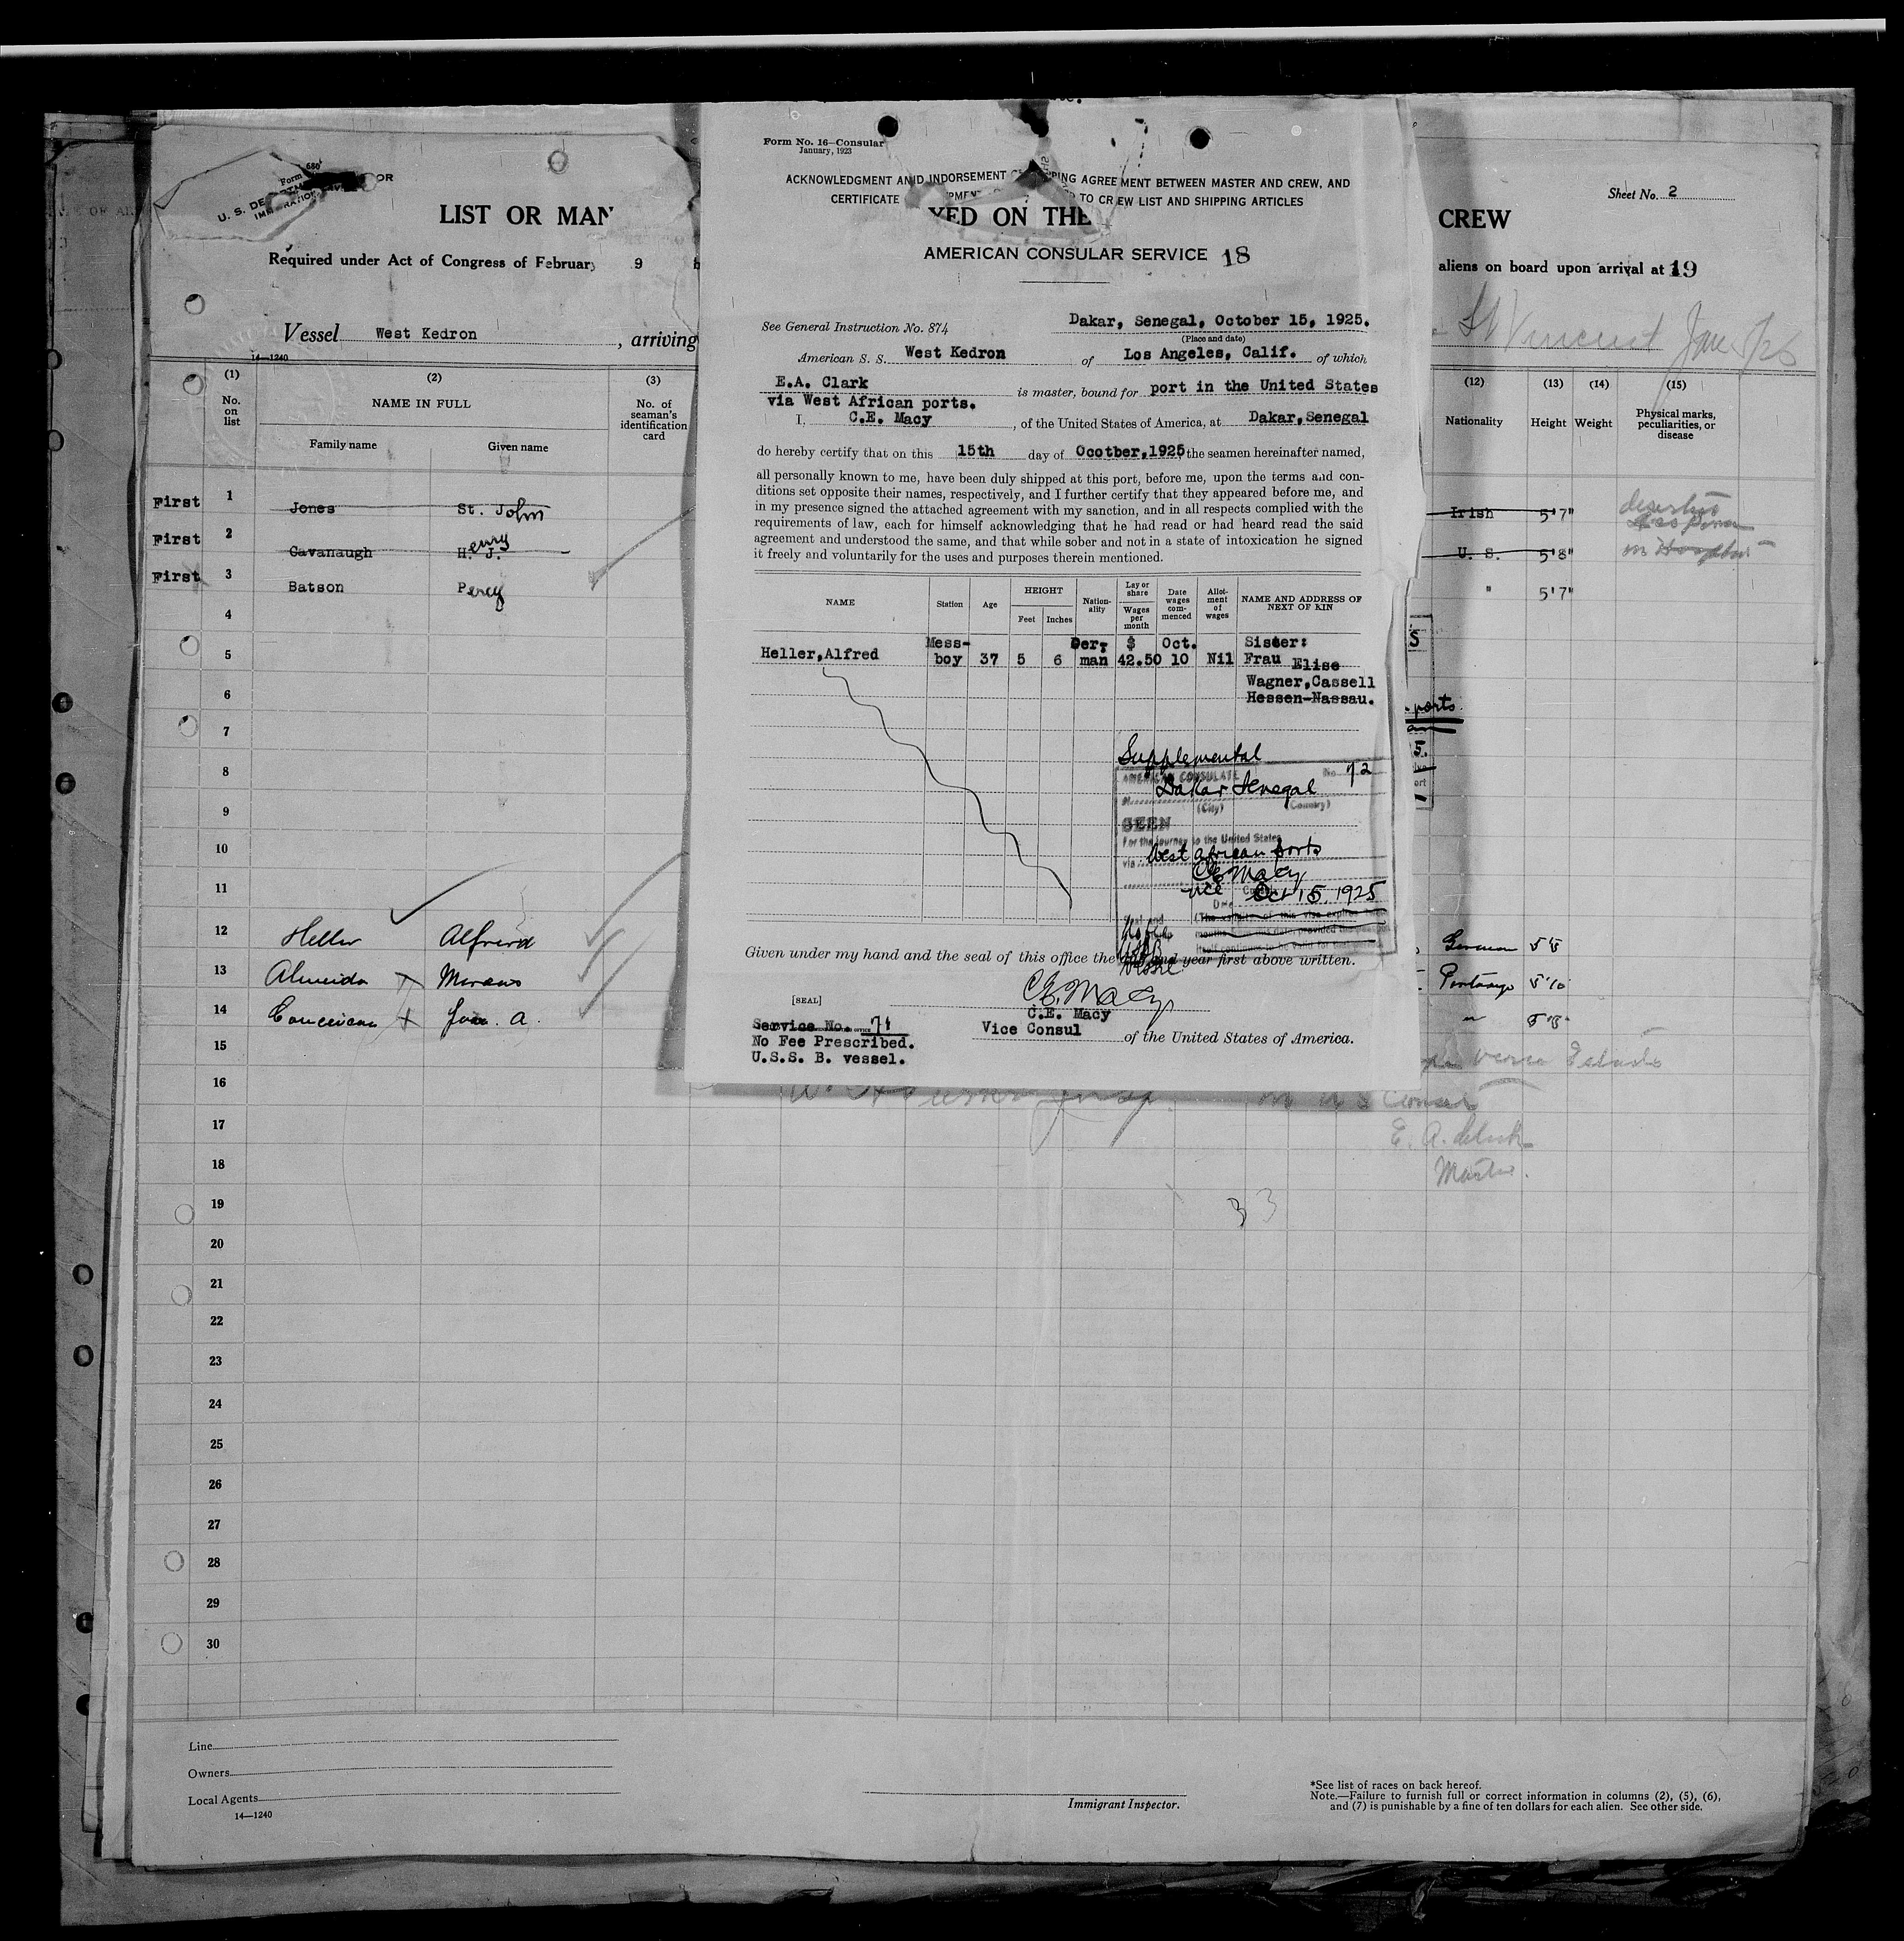 Form 680
U. S. DE
IMMIGRATION
OR
LIST OR MAN
Required under Act of Congress of Februar 9
Vessel West Kedron , arriving
14—1240
(1) (2) (3)
No. on list
NAME IN FULL
Family name Given name
No. of seaman's identification card
First 1 Jones St. John
First 2 Cavanaugh Henry J.
First 3 Batson Percy
4
5
6
7
8
9
10
11
12 Heller Alfred
13 Almeida x
14 x A.
15
16
17
18
19
20
21
22
23
24
25
26
27
28
29
30
Line
Owners
Local Agents
14—1240
Form No. 16—Consular
January, 1923
ACKNOWLEDGMENT AND INDORSEMENT SHIPPING AGREEMENT BETWEEN MASTER AND CREW, AND
CERTIFICATE TO CREW LIST AND SHIPPING ARTICLES
YED ON THE
AMERICAN CONSULAR SERVICE 18
See General Instruction No. 874
Dakar, Senegal, October 15, 1925.
(Place and date)
American S. S. West Kedron of Los Angeles, Calif. of which
E.A. Clark is master, bound for port in the United States
via West African ports.
I, C.E. Macy , of the United States of America, at Dakar,Senegal
do hereby certify that on this 15th day of Ocotber,1925, the seamen hereinafter named,
all personally known to me, have been duly shipped at this port, before me, upon the terms and con-
ditions set opposite their names, respectively, and I further certify that they appeared before me, and
in my presence signed the attached agreement with my sanction, and in all respects complied with the
requirements of law, each for himself acknowledging that he had read or had heard read the said
agreement and understood the same, and that while sober and not in a state of intoxication he signed
it freely and voluntarily for the uses and purposes therein mentioned.
NAME Station Age HEIGHT Feet Inches Nation-ality Lay or share Wages per month Date wages com-menced Allot-ment of wages NAME AND ADDRESS OF NEXT OF KIN
Mess- Ger- $ Oct. Sister:
Heller,Alfred boy 37 5 6 man 42.50 10 Nil Frau Elise
Wagner,Cassell
Hessen-Nassau.
Supplemental
AMERICAN CONSULATE No. 72
Dakar Senegal
(City) (Country)
SEEN
For the journey to the United States
via West African ports
C.E. Macy
Vice
Oct 15, 1925
Given under my hand and the seal of this office the day and year first above written.
[SEAL] C.E. Macy
C.E. Macy
Service No. 71 Vice Consul of the United States of America.
No Fee Prescribed.
U.S.S. B. vessel.
Sheet No. 2
CREW
aliens on board upon arrival at 19
St Vincent Jan
(12) (13) (14) (15)
Nationality Height Weight Physical marks, peculiarities, or disease
Irish 5'7"
U. S. 5'8"
" 5'7"
S
ports
5.
German 5'5
5'10
E. A. Clark
Master.
33
Immigrant Inspector.
*See list of races on back hereof.
Note.—Failure to furnish full or correct information in columns (2), (5), (6),
and (7) is punishable by a fine of ten dollars for each alien. See other side.